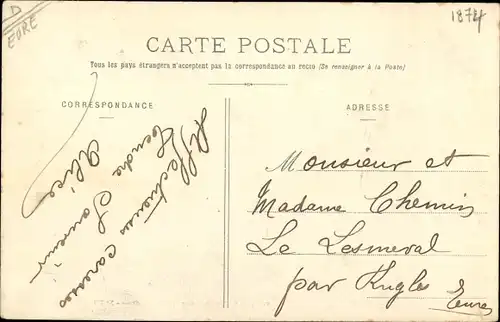 D
EURE
1874
CARTE POSTALE
Tous les pays étrangers n'acceptent pas la correspondance au recto (Se renseigner à la Poste)
CORRESPONDANCE
Affectueuses caresses
tendre Souvenir
Alice
ADRESSE
Monsieur et
Madame Chemin
Le Lesmeral
par Rugles
Eure